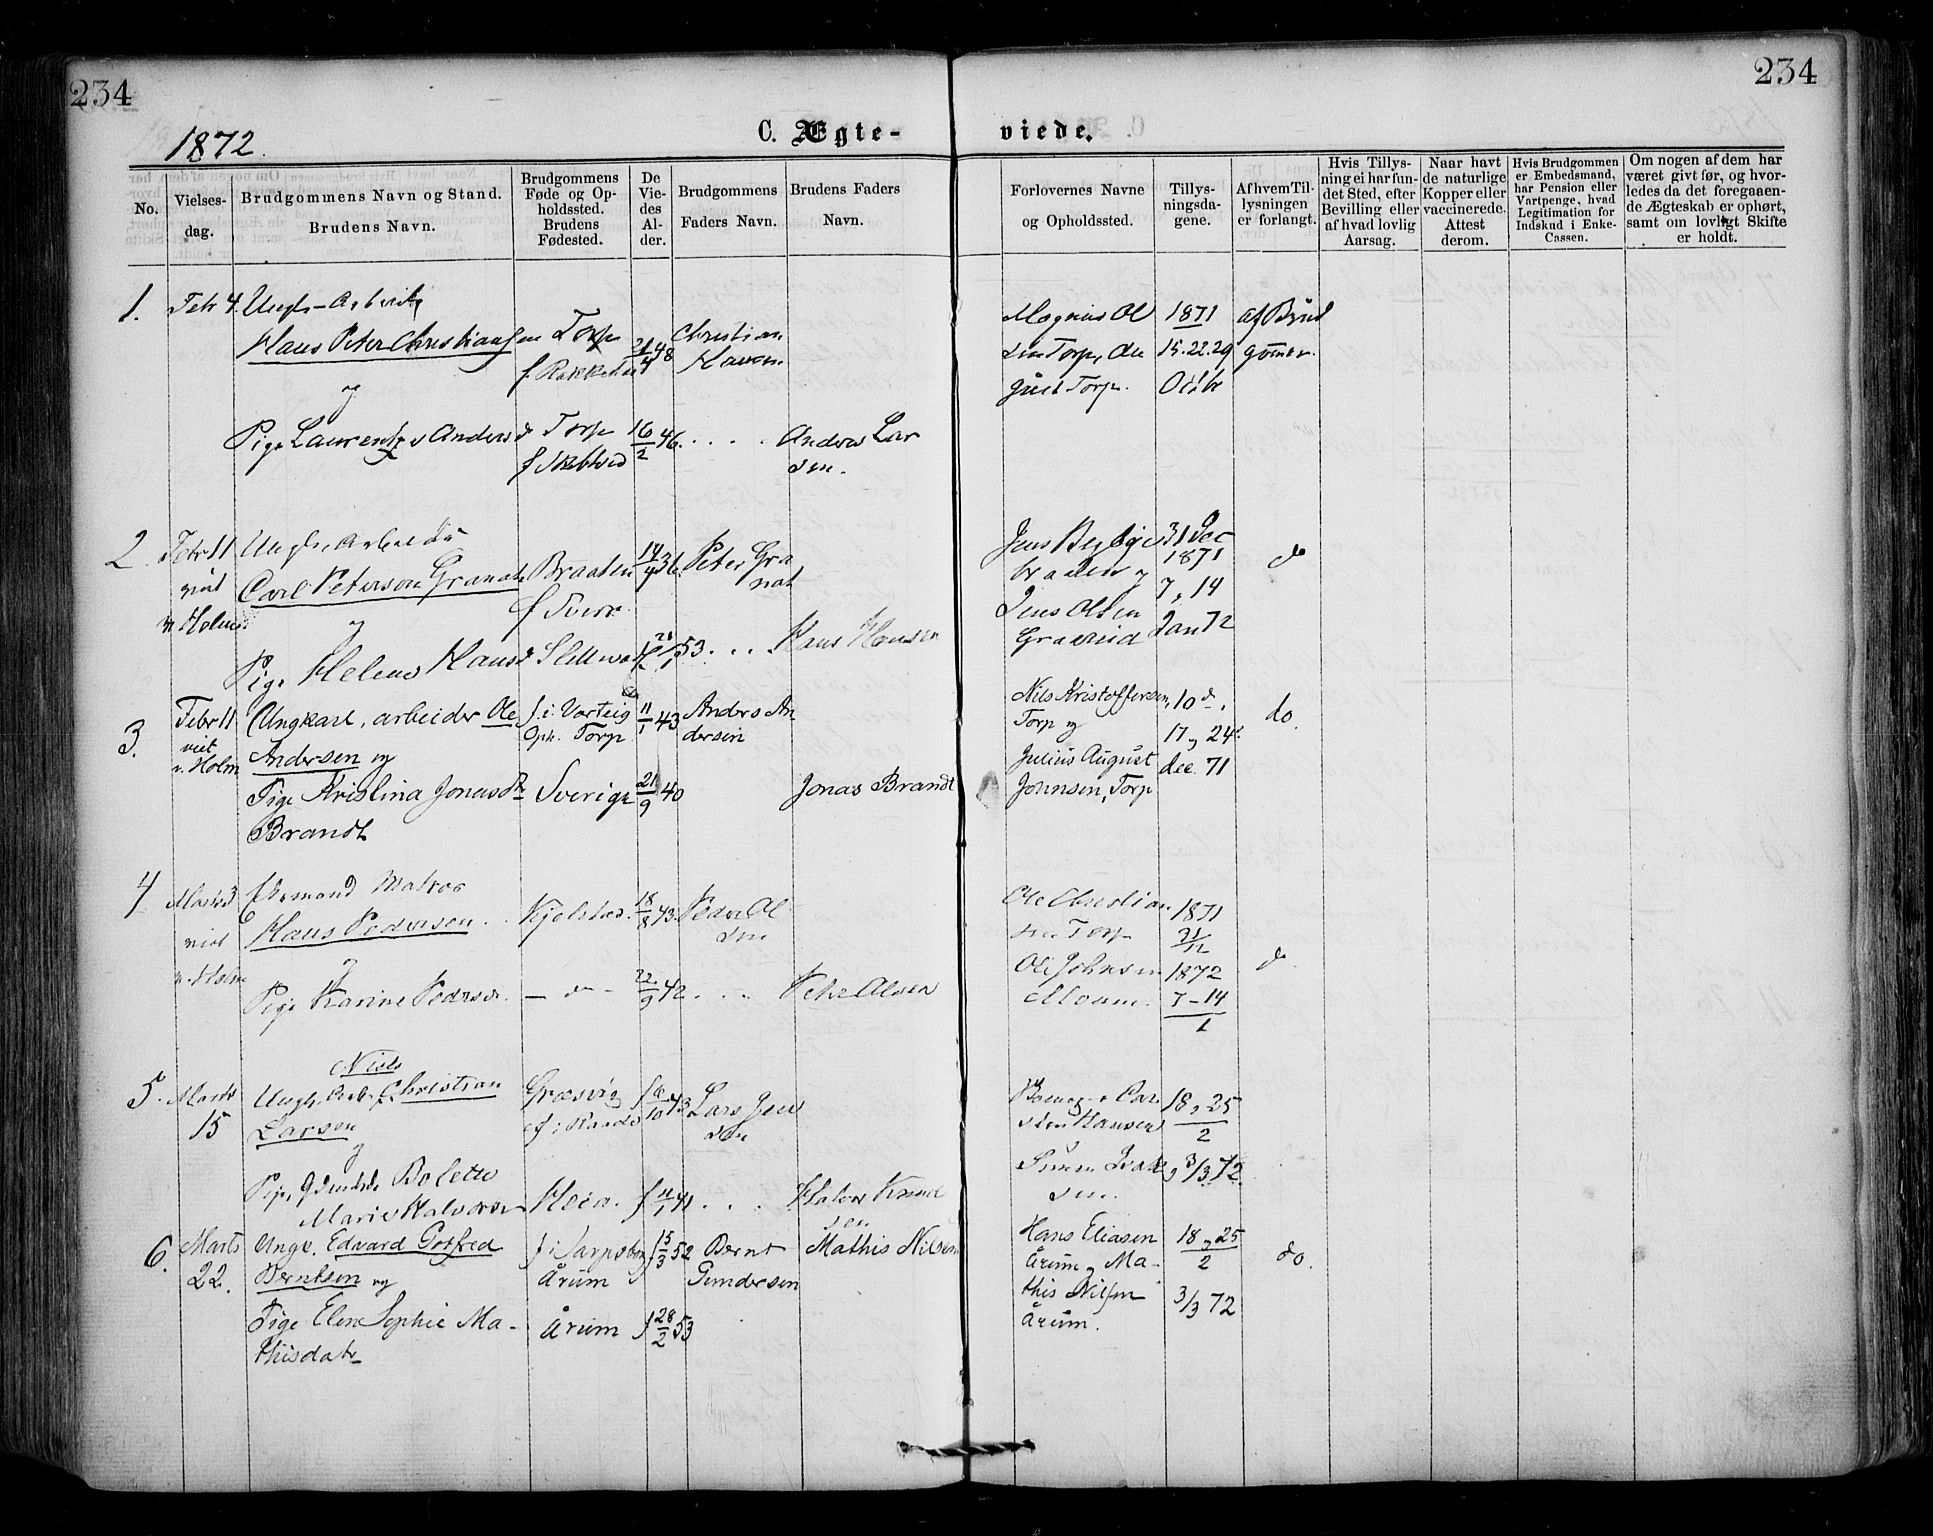 234
234
1872.
C. Ægte-
viede.
No.
Vielses-
dag.
Brudgommens Navn og Stand.
Brudens Navn.
Brudgommens
Føde og Op-
holdssted.
Brudens
Fødested.
De
Vie-
des
Al-
der.
Brudgommens
Faders Navn.
Brudens Faders
Navn.
Forlovernes Navne
og Opholdssted.
Tillys-
ningsda-
gene.
Af hvem Til-
lysningen
er forlangt.
Hvis Tillys-
ning ei har fun-
det Sted, efter
Bevilling eller
af hvad lovlig
Aarsag.
Naar havt
de naturlige
Kopper eller
vaccinerede.
Attest
derom.
Hvis Brudgommen
er Embedsmand,
har Pension eller
Vartpenge, hvad
Legitimation for
Indskud i Enke-
Cassen.
Om nogen af dem har
været givt før, og hvor-
ledes da det foregaaen-
de Ægteskab er ophørt,
samt om lovligt Skifte
er holdt.
1.
Febr 4.
Hans Peter Christiansen
og
Pige Anders d
Torp
f.
21/4 48
Christian
Hansen
Torp
f Skebteed
16/2 46.
. . . .
Anders Lar
sen.
Magnus Ol
sen Torp, Ole
Torp.
1871
15. 22. 29
Octbr
af Brud
gommen.
2
Febr 11
viet
Holm
Carl Peterson Granat
og
Pige Helene Hansd
Braaten
f Sverr.
14/4 36.
Peter Gra
nat
21/1 53
. . .
Hans Hansen
Jens
braaten og
Jens Olsen
31 Dec
1871
7, 14
Jan 72
do
3.
Febr 11
viet
i. Holm
Ungkarl, arbeider Ole
Andersen og
Pige Kristina Jonasdr
Brandt
f. i Varteig
Oph. Torp
11/1 43
Anders An
dersen
Sverige
21/9 40
Jonas Brandt
Nils Kristoffersen,
Torp og
Julius August
Johnsen, Torp
10de,
17 og 24de
dec. 71
do.
4
Marts 3
viet
Holm
Matros
Hans Pedersen.
og
Pige Karine Pedersdr.
Kjølstad.
18/8 43.
Peder Ol
sen
— do —
22/9 42
. . .
Peter Olsen
Ole Christian
sen Torp
Ole Johnsen
Moum.
1871
31/12
1872
7-14
1
do
5.
Marts
15
Niels
Ungk. Arb. Christian
Larsen
og
Pige, Bolette
Marie Halvorsen
Græsvig
f. i Raade
f 6/10 43
Lars Jen
sen
Hoia.
f 11/1 41
. . .
Halvor Knud
sen
sten Hansen
Simen Isak
sen.
18, 25
2
3/3 72.
6.
Marts
22.
Ungk. Edvard Gotfred
Berntsen og
Pige Elen Sophie Ma-
thisdatr
f i Sarpsborg
Årum
f 15/3 52
Bernt
Gundersen
Mathis Nilsen
Årum
f 28/2 53
Hans Eliasen
Årum og Ma-
this Nilsen
Årum.
18 og 25
2
3/3 72
do.